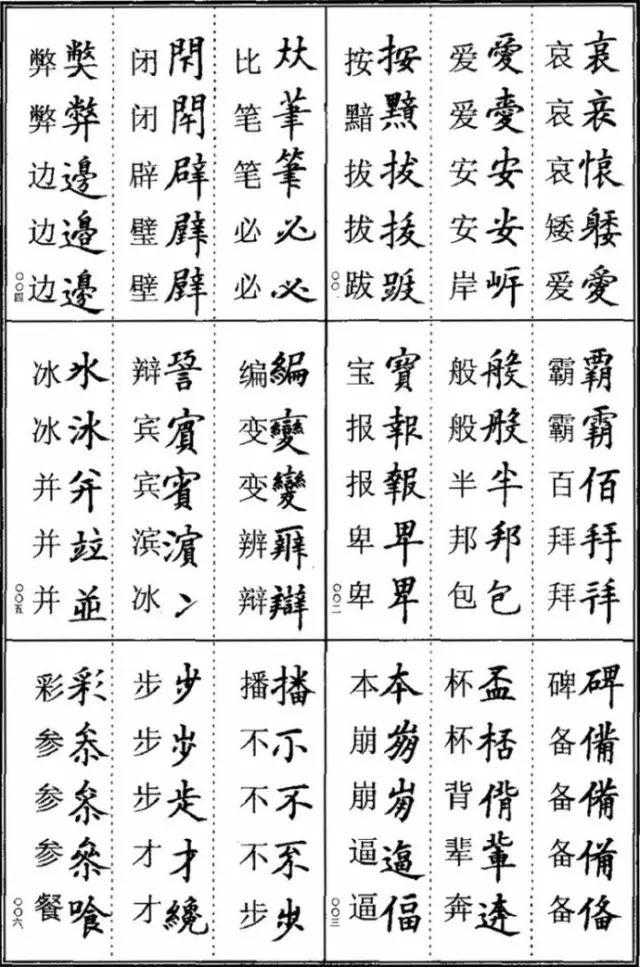 哀哀 哀 哀 矮 爱愛
爱愛 爱 安安 安安 岸㟁
按按 黯 拔拔 拔 跋
〇〇一
霸覇 霸霸 百佰 拜拜 拜
般般 般般 半半 邦邦 包包
宝寶 报報 报報 卑卑 卑卑
〇〇二
碑碑 备備 备備 备備 备
杯盃 杯桮 背偝 辈輩 奔逩
本本 崩崩 崩 逼逼 逼偪
〇〇三
比夶 笔茟 笔筆 必必 必必
闭閇 闭閉 辟辟 璧 壁
弊 弊弊 边邊 边邉 边邊
〇〇四
编編 变變 变變 辨 辩辯
辩 宾賔 宾賓 滨濵 冰冫
冰氷 冰冰 并并 并竝 并並
〇〇五
播播 不 不不 不 步
步步 步歩 步 才才 才纔
彩彩 参 参 参 餐飡
〇〇六